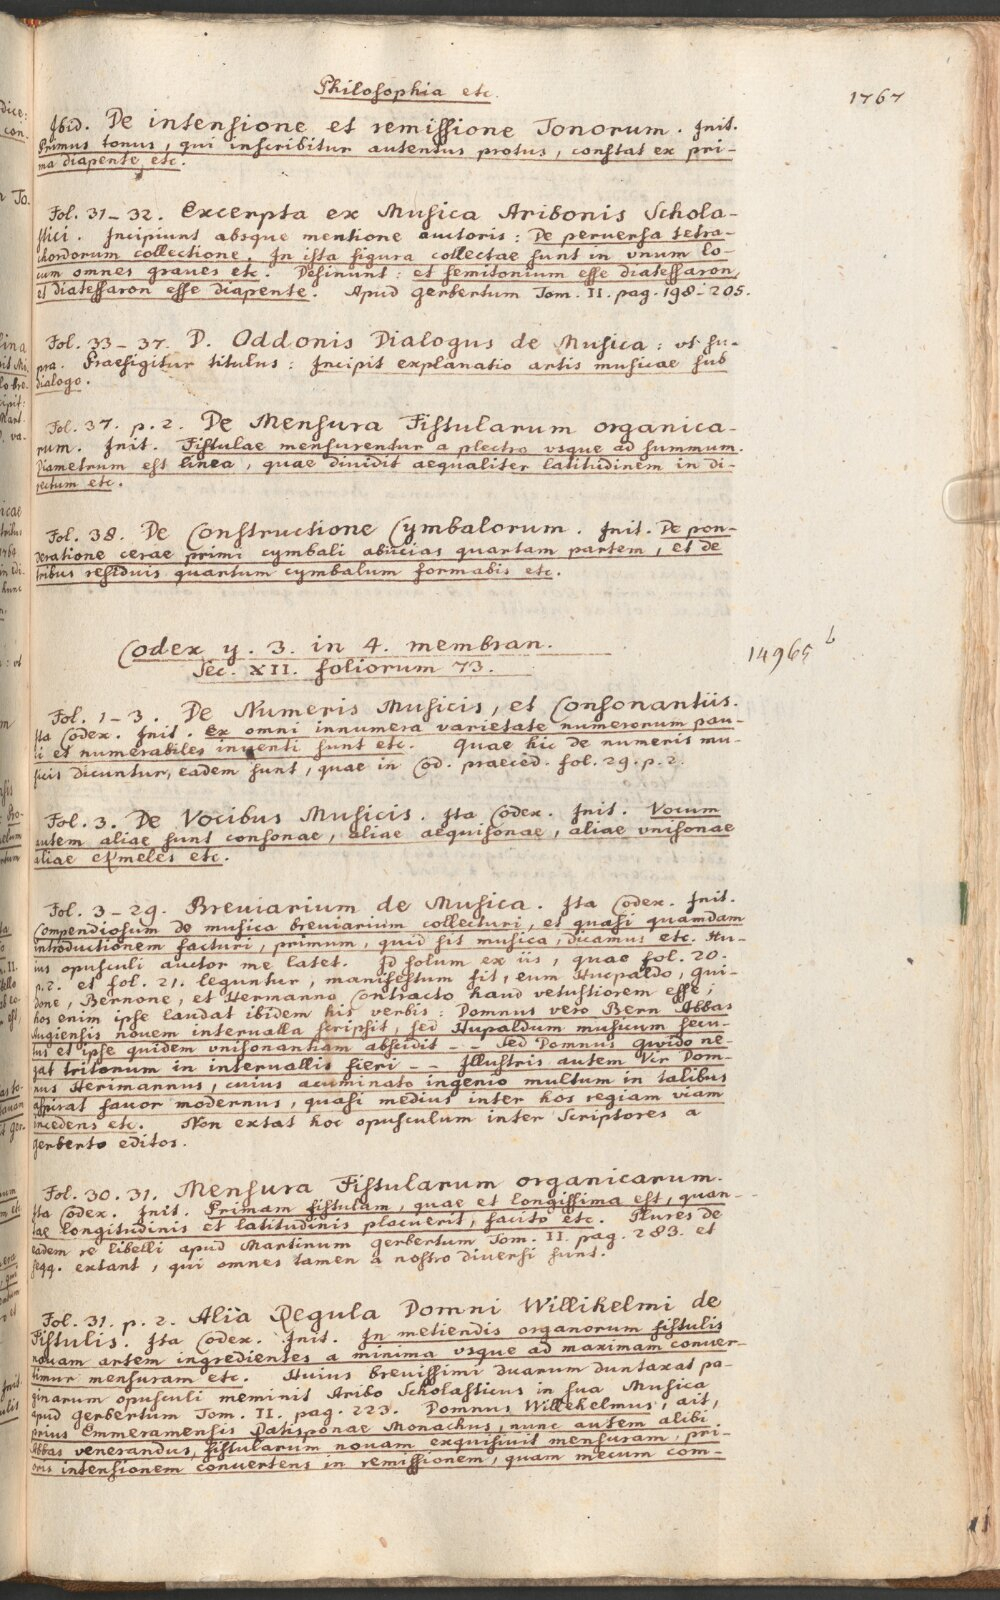 Philosophia etc.
1767
Ibid. De intensione et remissione Tonorum. Init.
Primus tonus, qui inscribitur autentus protus, constat ex pri-
ma diapente, etc.
Fol. 31-32. Excerpta ex Musica Aribonis Schola-
stici. Incipiunt absque mentione auctoris: De peruersa tetra-
chordorum collectione. In ista figura collectae sunt in vnum lo-
cum omnes graues etc. Desinunt: et semitonium esse diatessaron,
et diatessaron esse diapente. Apud Gerbertum Tom. II. pag. 198-205.
Fol. 33-37. D. Oddonis Dialogus de Musica: vt su-
pra. Praefigitur titulus: Incipit explanatio artis musicae sub
dialogo.
Fol. 37. p. 2. De Mensura Fistularum organica-
rum. Init. Fistulae mensurentur a plectro vsque ad summum.
Diametrum est linea, quae diuidit aequaliter latitudinem in di-
rectum etc.
Fol. 38. De Constructione Cymbalorum. Init. De pon-
deratione cerae primi cymbali abiicias quartam partem, et de
tribus residuis quartum cymbalum formabis etc.
Codex y. 3. in 4. membran.
14965 b
Sec. XII. foliorum 73.
Fol. 1-3. De Numeris Musicis, et Consonantiis.
Ita Codex. Init. Ex omni innumera varietate numerorum pau-
ci et numerabiles inuenti sunt etc. Quae hic de numeris mu-
sicis dicuntur, eadem sunt, quae in Cod. praeced. fol. 29. p. 2.
Fol. 3. De Vocibus Musicis. Ita Codex. Init. Vocum
autem aliae sunt consonae, aliae aequisonae, aliae vnisonae
aliae ekmeles etc.
Fol. 3-29. Breuiarium de Musica. Ita Codex. Init.
Compendiosum de musica breuiarium collecturi, et quasi quamdam
introductionem facturi, primum, quid sit musica, dicamus etc. Hu-
ius opusculi auctor me latet. Id solum ex iis, quae fol. 20.
p. 2. et fol. 21. leguntur, manifestum fit, eum Hucpaldo, Gui-
done, Bernone, et Hermanno Contracto haud vetustiorem esse;
hos enim ipse laudat ibidem his verbis: Domnus vero Bern Abbas
Augiensis nouem interualla scripsit, sed Hupaldum musicum secu-
tus et ipse quidem vnisonantiam abscidit -- Sed Domnus Gwido ne-
gat tritonum in interuallis fieri -- Illustris autem Vir Dom-
nus Herimannus, cuius acuminato ingenio multum in talibus
aspirat fauor modernus, quasi medius inter hos regiam viam
incedens etc. Non extat hoc opusculum inter Scriptores a
Gerberto editos.
Fol. 30. 31. Mensura Fistularum organicarum.
Ita Codex. Init. Primam fistulam, quae et longissima est, quan-
tae longitudinis et latitudinis placuerit, facito etc. Plures de
eadem re libelli apud Martinum Gerbertum Tom. II. pag. 283. et
seqq. extant, qui omnes tamen a nostro diuersi sunt.
Fol. 31. p. 2. Alia Regula Domni Willihelmi de
Fistulis. Ita Codex. Init. In metiendis organorum fistulis
nouam artem ingredientes a minima vsque ad maximam conuer-
timur mensuram etc. Huius breuissimi duarum duntaxat pa-
ginarum opusculi meminit Aribo Scholasticus in sua Musica
apud Gerbertum Tom. II. pag. 223. Domnus Willehelmus, ait,
prius Emmeramensis Ratisponae Monachus, nunc autem alibi
Abbas venerandus, fistularum nouam exquisiuit mensuram, pri-
oris intensionem conuertens in remissionem, quam mecum com-